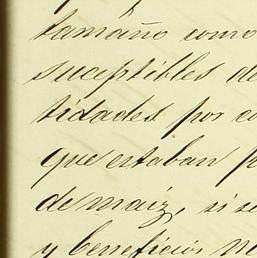 tamaño como
suceptibles de
tidades por co
que estaban p
de maiz, si se
y beneficios no